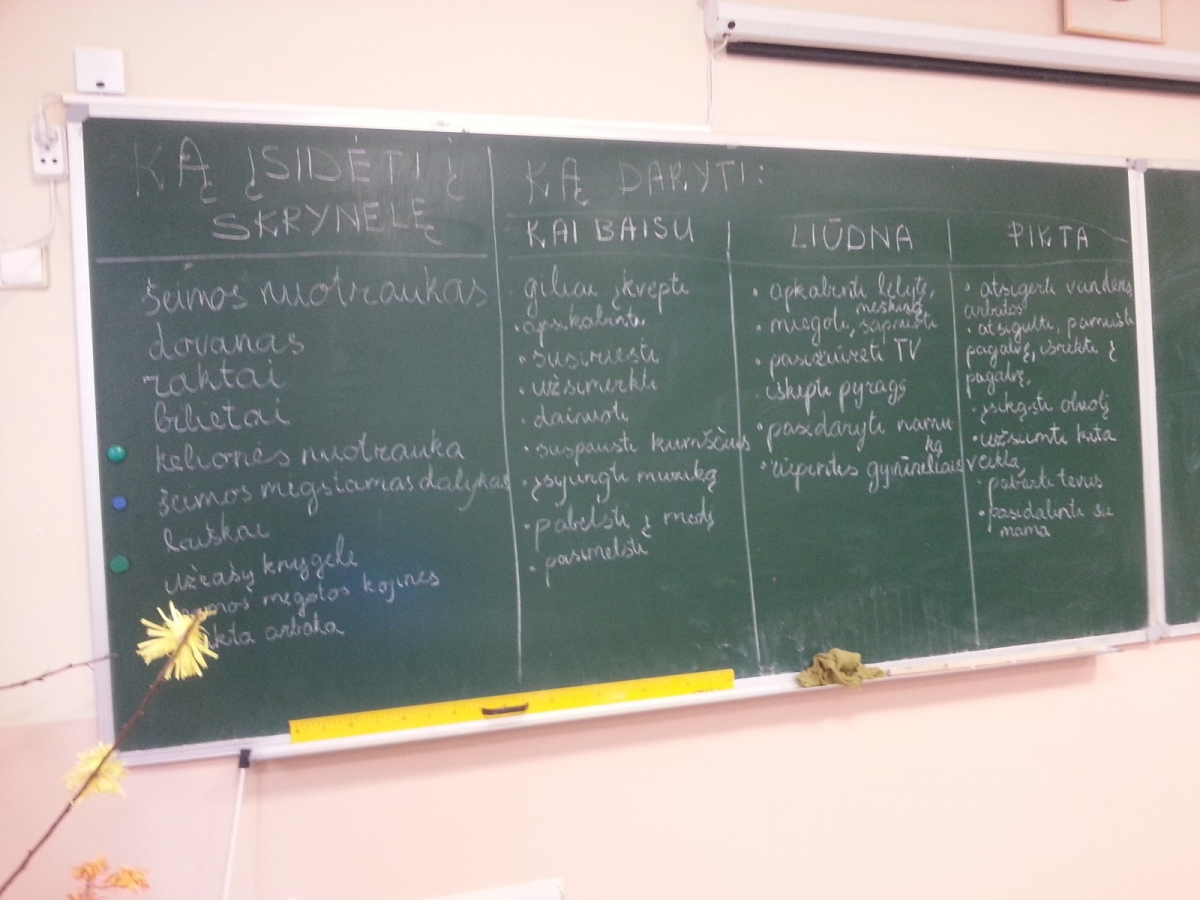 KĄ ĮSIDĖTI Į
SKRYNELĘ
šeimos nuotraukas
dovanas
raktai
bilietai
kelionės nuotrauka
šeimos mėgstamas dalykas
laiškai
užrašų knygelė
megztos kojinės
arbata
KĄ DARYTI:
KAI BAISU
giliai įkvėpti
• apsikabinti
• susiriesti
• užsimerkti
• dainuoti
• suspausti kumščius
• įsijungti muziką
• pabelsti į medį
• pasimelsti
LIŪDNA
• apkabinti lėlytę,
meškiną
• miegoti, sapnuoti
• pasižiūrėti TV
• iškepti pyragą
• pasidaryti namu-
ką
• rūpintis gyvūnėliais
PIKTA
• atsigerti vandens
arbatos
• atsigulti, pamušti
pagalvę, išrėkti į
pagalvę,
• įsikąsti obuolį
• užsiimti kita
veikla
• pabarti tėvus
• pasidalinti su
mama